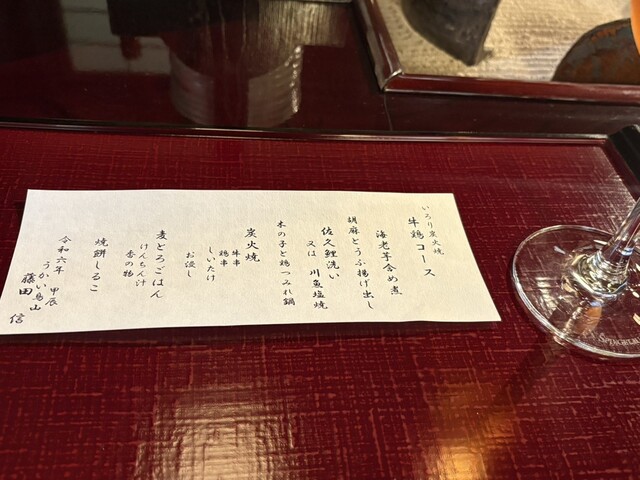 いろり炭火焼
牛鶏コース
海老芋含め煮
胡麻とうふ揚げ出し
佐久鯉洗い
又は 川魚塩焼
木の子と鶏つみれ鍋
炭火焼
牛串
鶏串
しいたけ
お浸し
麦とろごはん
けんちん汁
香の物
焼餅しるこ
令和六年 甲辰
うかい鳥山
藤田 信
SPIEGELAU